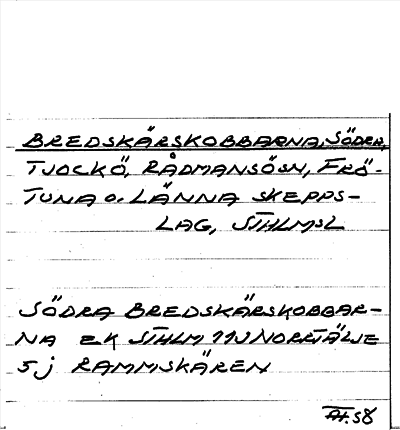 BREDSKÄRSKOBBARNA, SÖDRA,
TJOCKÖ, RÅDMANSÖSN, FRÖ-
TUNA o. LÄNNA SKEPPS-
LAG, STHLMSL
SÖDRA BREDSKÄRSKOBBAR-
NA EK STHLM 11J NORRTÄLJE
5j RAMMSKÄREN